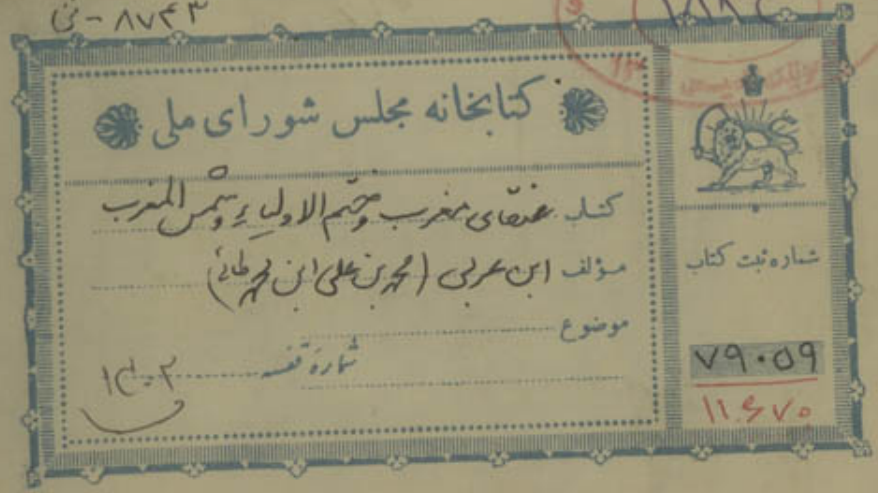 ۸۷۴۳ - خ
کتابخانه مجلس شورای ملی
کتاب عنقای مغرب و ختم الاولیاء و شمس المغرب
مؤلف ابن عربی (محمد بن علی ابن محمد طائی)
موضوع
شماره قفسه
شماره ثبت کتاب
۷۹۰۵۹